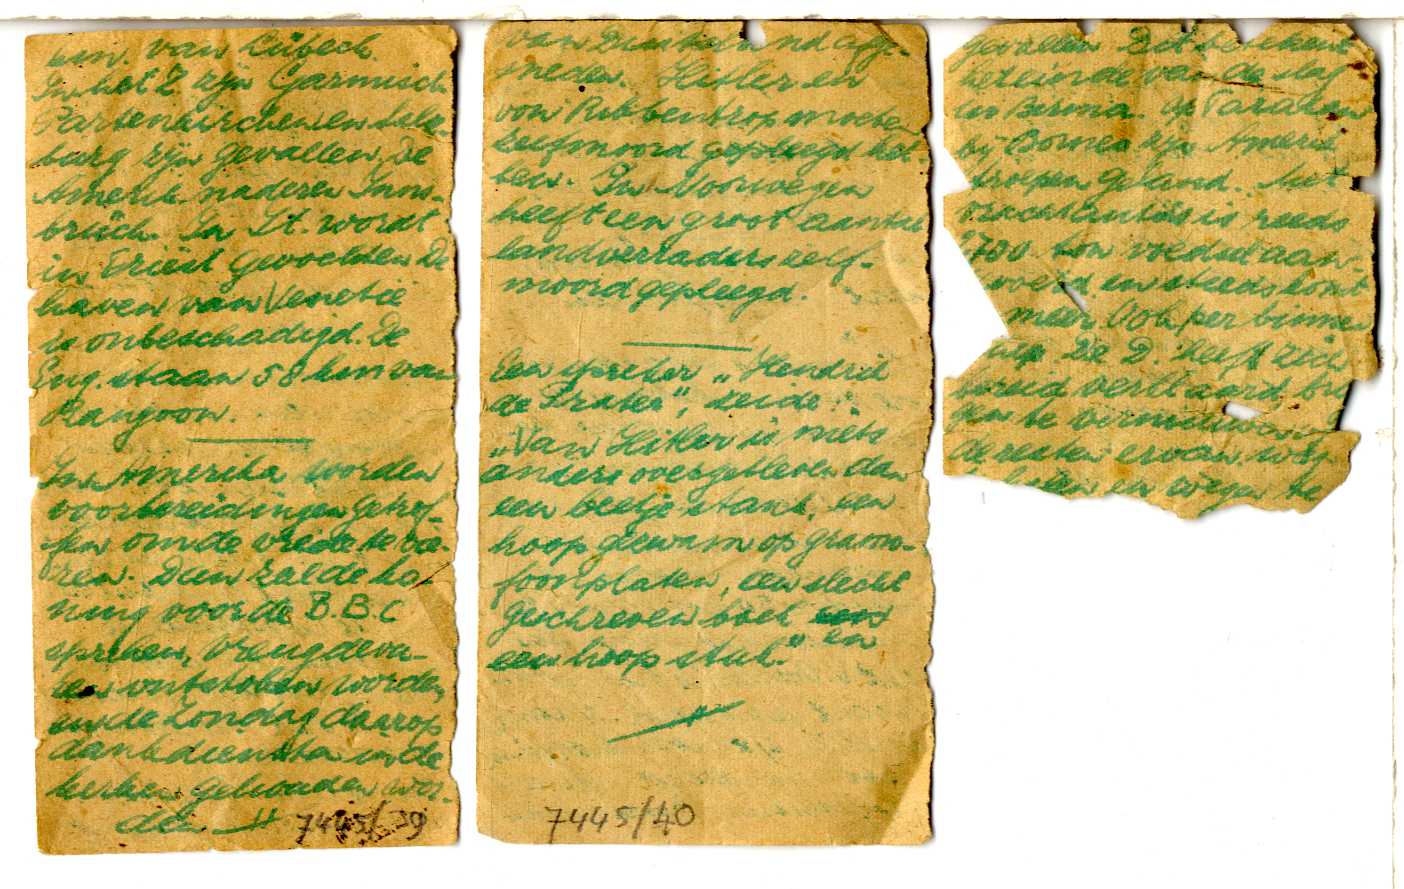 km. van Lübeck.
In het Z zijn Garmisch
Partenkirchen en Salz-
burg zijn gevallen, De
Amerik. naderen Inns
brück. In It. wordt
in Triëst gevochten De
haven van Venetië
is onbeschadigd. De
Eng. staan 58 km van
Rangoon.
In Amerika worden
voorbereidingen getrof-
fen om de vrede te vie-
ren. Dan zal de ko-
ning voor de B.B.C
spreken, vreugdevu-
ren ontstoken worden
en de Zondag daarop
dankdiensten in de
kerken gehouden wor-
den
7445/39
van Duitschland afge-
sneden. Hitler en
von Ribbentrop moeten
zelfmoord gepleegd heb
ben. In Noorwegen
heeft een groot aantal
landverraders zelf-
moord gepleegd.
Een spreker „Hendrik
de Prater", zeide
„Van Hitler is niets
anders overgebleven dan
een beetje stank, een
hoop gekwin op gramo-
foonplaten, een slecht
geschreven boek en
een hoop stuk."
7445/40
gevallen Dit beteekent
het einde van de slag
in Birma. Op Tarakan
bij Borneo zijn Amerik
troepen geland. Met
is reeds
1700 ton voedsel aan-
gevoerd en steeds komt
meer. Ook per binnen
De D. heeft zich
bereid verklaard
gen te
de resten ervan
wegen te